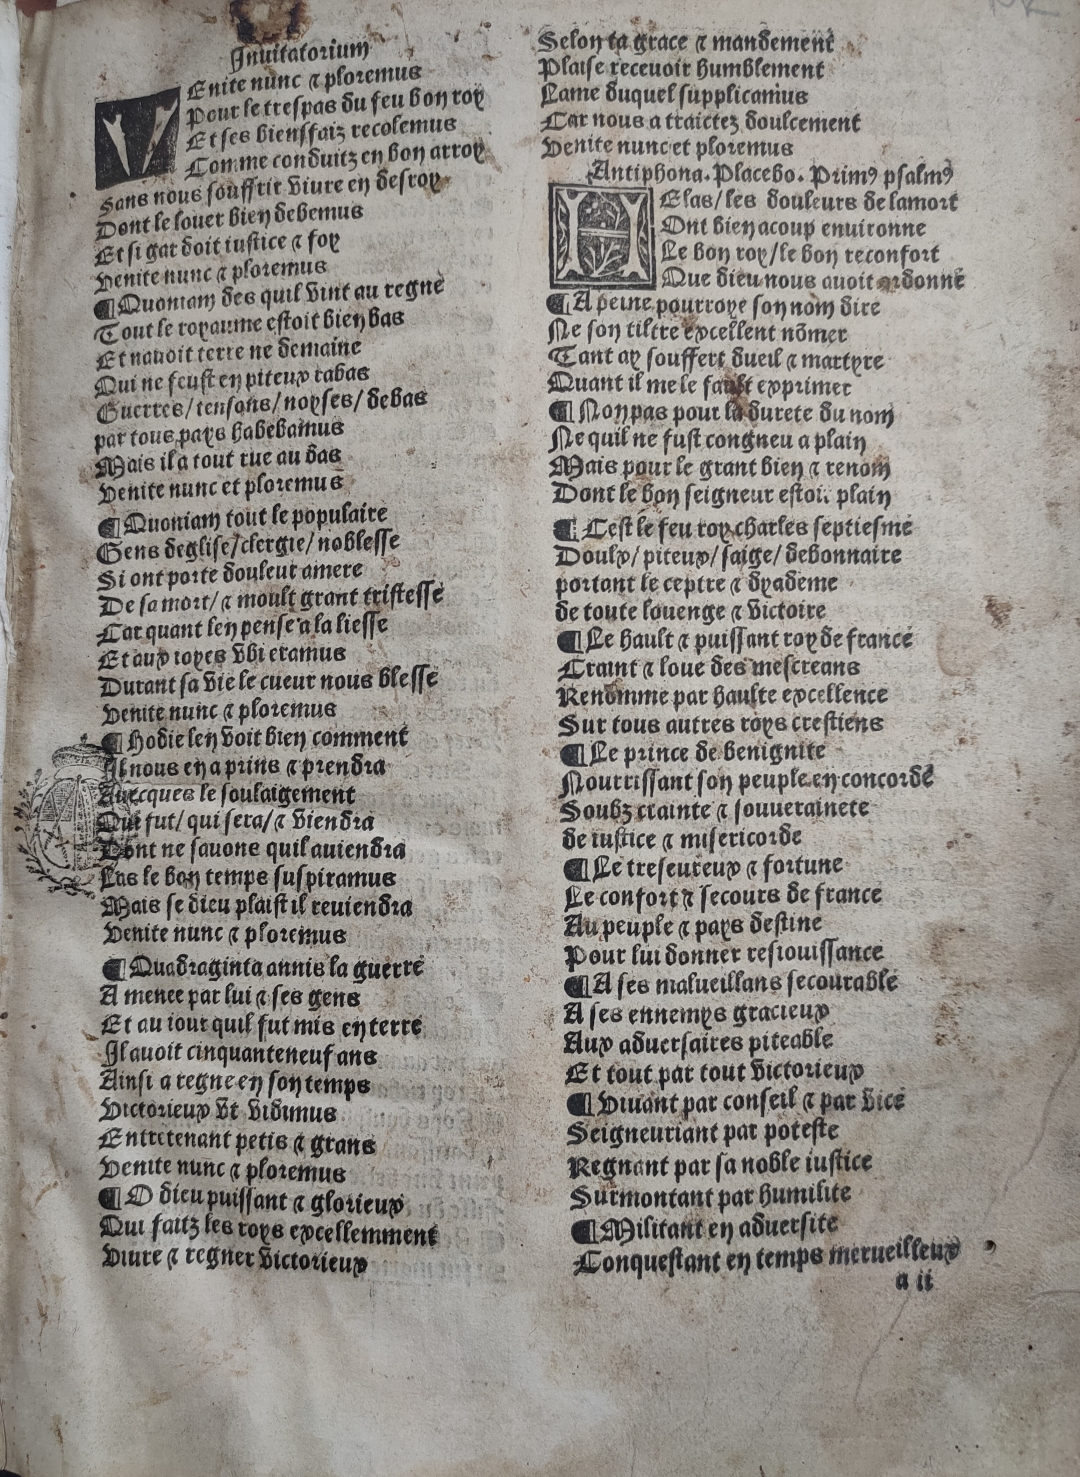 Inuitatorium
VEnite nunc ⁊ ploremus
Pour le trespas du feu bon roy
Et ses biensfaiz recolemus
Comme conduitz en bon arroy
Sans nous souffrir viure en desroy
Dont le louer bien debemus
Et si gar doit iustice ⁊ foy
Venite nunc ⁊ ploremus
¶ Quoniam des quil vint au regne
Tout le royaume estoit bien bas
Et nauoit terre ne demaine
Qui ne feust en piteux rabas
Guerres/ tensons/ noyses/ debas
par tous pays habebamus
Mais il a tout rue au bas
Venite nunc et ploremus
¶ Quoniam tout le populaire
Gens deglise/ clergie/ noblesse
Si ont porte douleur amere
De sa mort/ ⁊ moult grant tristesse
Car quant len pense a la liesse
Et aux ioyes vbi eramus
Durant sa vie le cueur nous blesse
Venite nunc ⁊ ploremus
¶ Hodie len voit bien comment
Il nous en a prins ⁊ prendra
Auecques le soulaigement
Qui fut/ qui sera/ ⁊ viendra
Dont ne sauons quil auiendra
Las le bon temps suspiramus
Mais se dieu plaist il reuiendra
Venite nunc ⁊ ploremus
¶ Quadraginta annis la guerre
A menee par lui ⁊ ses gens
Et au iour quil fut mis en terre
Il auoit cinquanteneuf ans
Ainsi a regne en son temps
Victorieux vt vidimus
Entretenant petis ⁊ grans
Venite nunc ⁊ ploremus
¶ O dieu puissant ⁊ glorieux
Qui faitz les roys excellemment
Viure ⁊ regner victorieux
Selon ta grace ⁊ mandement
Plaise receuoir humblement
Lame duquel supplicamus
Car nous a traictez doulcement
Venite nunc et ploremus
Antiphona. Placebo. Primꝰ psalmꝰ
HElas/ les douleurs de la mort
Ont bien acoup enuironne
Le bon roy/ le bon reconfort
Que dieu nous auoit ordonne
¶ A peine pourroye son nom dire
Ne son tiltre excellent nōmer
Tant ay souffert dueil ⁊ martyre
Quant il me le fault exprimer
¶ Non pas pour la durete du nom
Ne quil ne fust congneu a plain
Mais pour le grant bien ⁊ renom
Dont le bon seigneur estoit plain
¶ Cest le feu roy charles septiesme
Doulx/ piteux/ saige/ debonnaire
portant le ceptre ⁊ dyademe
de toute louenge ⁊ victoire
¶ Le hault ⁊ puissant roy de france
Craint ⁊ loue des mescreans
Renomme par haulte excellence
Sur tous autres roys crestiens
¶ Le prince de benignite
Nourrissant son peuple en concorde
Soubz crainte ⁊ souuerainete
de iustice ⁊ misericorde
¶ Le treseureux ⁊ fortune
Le confort ⁊ secours de france
Au peuple ⁊ pays destine
Pour lui donner resiouissance
¶ A ses malueillans secourable
A ses ennemys gracieux
Aux aduersaires piteable
Et tout par tout victorieux
¶ Viuant par conseil ⁊ par vice
Seigneuriant par poteste
Regnant par sa noble iustice
Surmontant par humilite
¶ Militant en aduersite
Conquestant en temps merueilleux
a ii